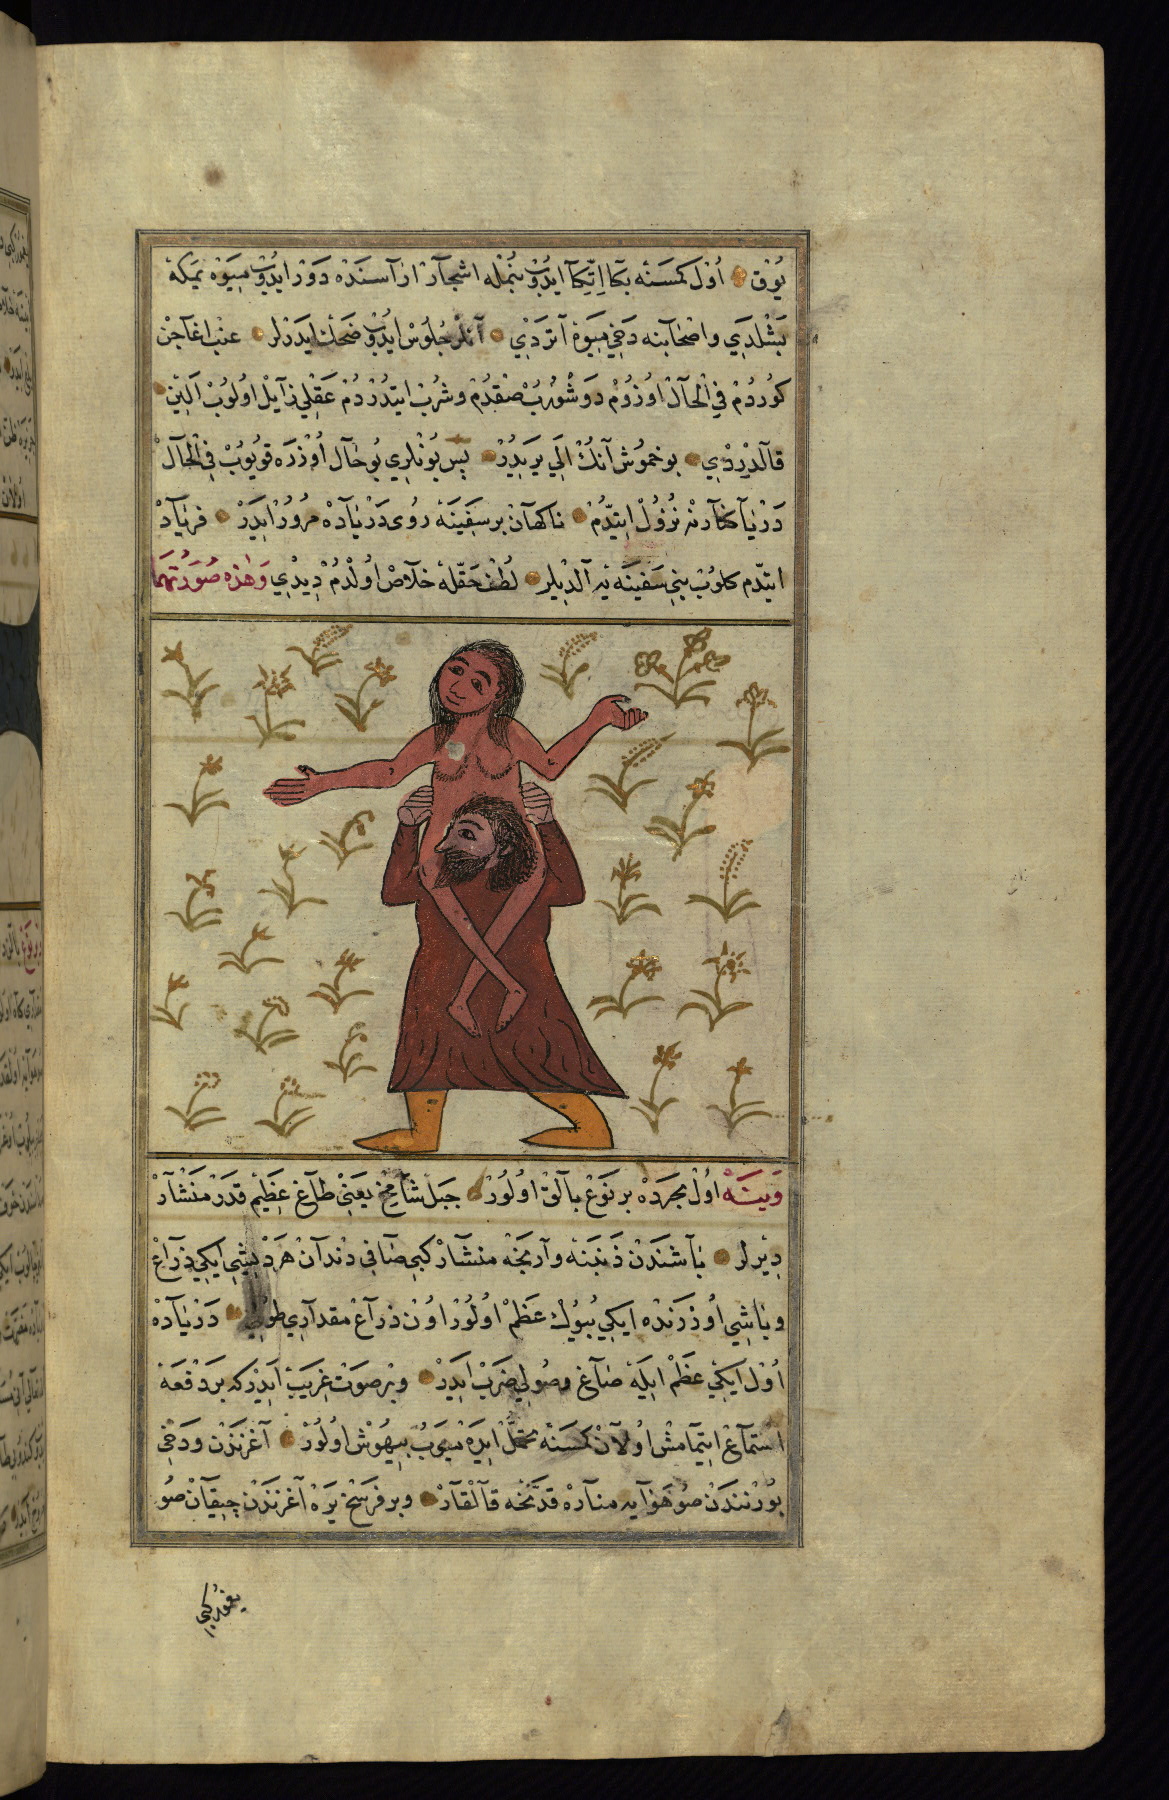 يوق اول كمسنه بكا اتكا ايدوب جمله اشجار اراسنده دور ايدوب ميوه يمكه
بشلدي واصحابنه دخي ميوه آتردي آنلر جلوس ايدوب ضحك ايدرلر عنب اغاجن
كوردم في الحال اوزوم دوشورب صقدم وشرب ايتدردم عقلي زايل اولوب الين
قالدردي بو خموش آنك الي يريدر پس بونلري بو حال اوزره قويوب في الحال
دريا كنارنه نزول ايتدم ناكهان بر سفينه روى درياده مرور ايدر فرياد
ايتدم كلوب بني سفينه يه آلديلر لطف حقله خلاص اولدم ديدي وهذه صورتهما
وينه اول بحرده بر نوع بالق اولور جبل شامخ يعني طاغ عظيم قدر منشار
ديرلر باشندن ذنبنه وارنجه منشار كبي صافي دندان هر ديشي ايكي ذراع
وباشي اوزرنده ايكي بيوك عظم اولور اون ذراع مقداري طولي درياده
اول ايكي عظم ايله صاغ وصولي ضرب ايدر وبر صوت غريب ايدر كه بر دفعه
استماع ايتمامش اولان كمسنه تحمل ايده ميوب بيهوش اولور آغزندن ودخي
بورنندن صو هوايه مناره قدنجه قالقار وبر فرسخ يره آغزندن چيقان صو
يغمور كبي